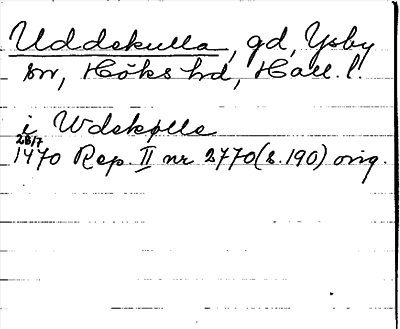 Uddskulla, gd, Ysby
sn, Höks hd, Hall. l.
i Wdskølle
28/7
1470 Rep. II nr 2770 (s. 190) orig.